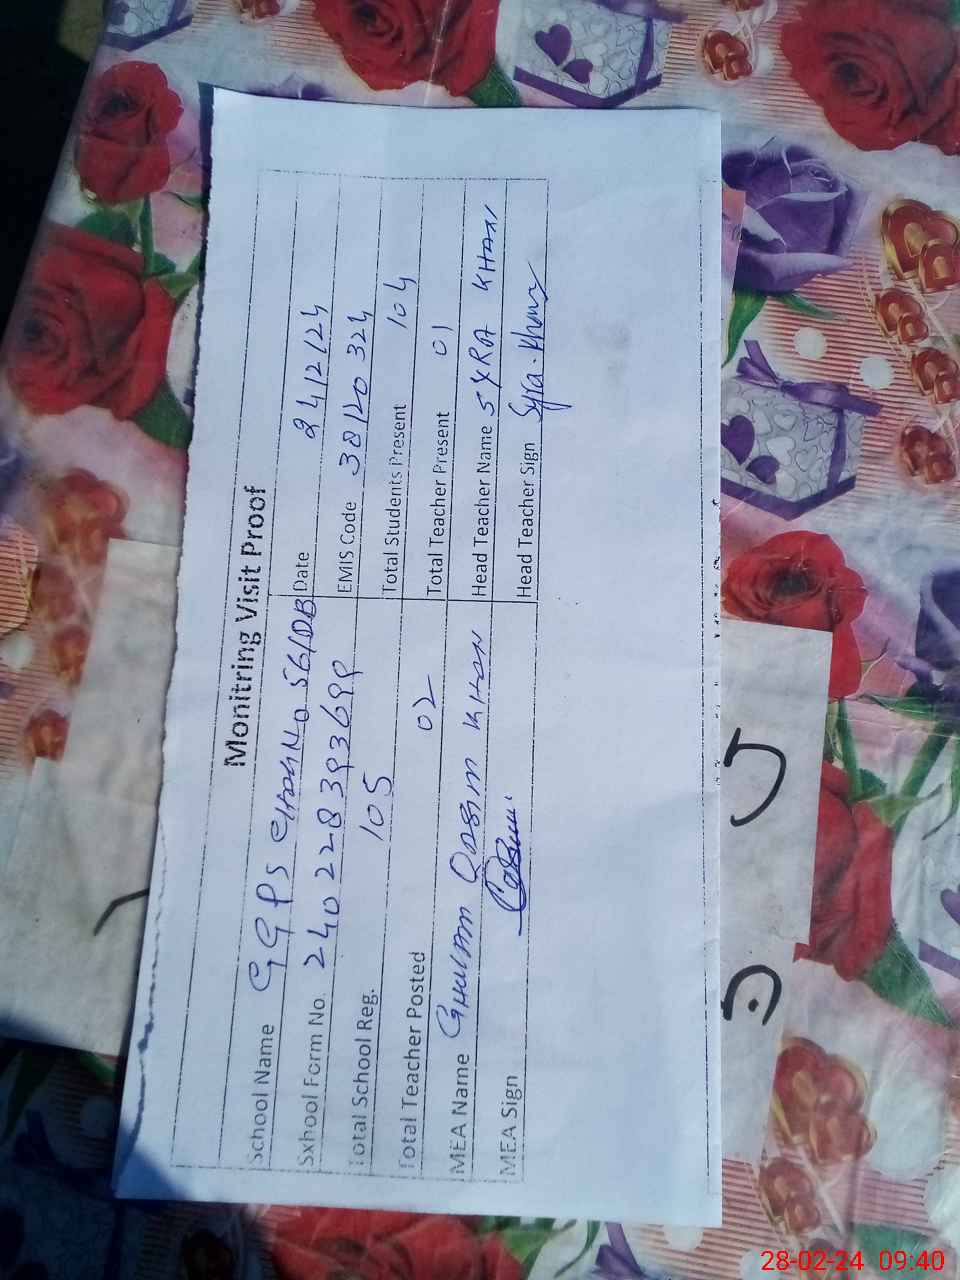 Monitring Visit Proof
School Name GGPS CHAHNo 56/DB Date 24/2/24
Sxhool Form No. 240228393699 EMIS Code 38120324
Total School Reg. 105 Total Students Present 104
Total Teacher Posted 02 Total Teacher Present 01
MEA Name GHULAM QASIM KHAN Head Teacher Name SYRA KHAN
MEA Sign Head Teacher Sign Syra.Khan
28-02-24 09:40